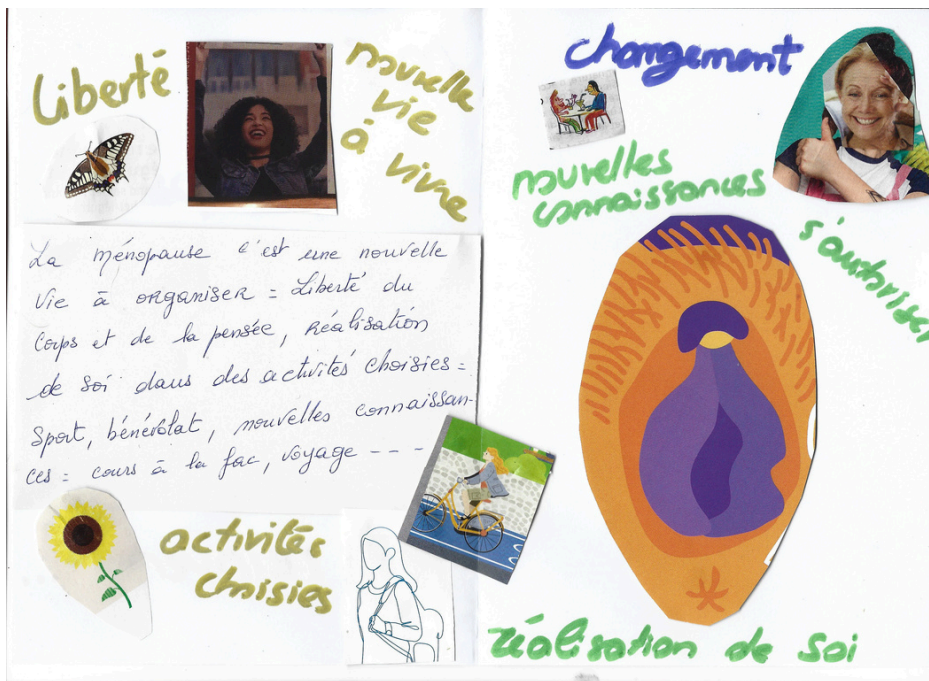 Liberté
nouvelle
vie
à vivre
La ménopause c'est une nouvelle
Vie à organiser = Liberté du
Corps et de la pensée, Réalisation
de soi dans des activités choisies =
Sport, bénévolat, nouvelles connaissan-
ces = cours à la fac, voyage - - -
activités
choisies
changement
nouvelles
connaissances
s'autoriser
réalisation de soi